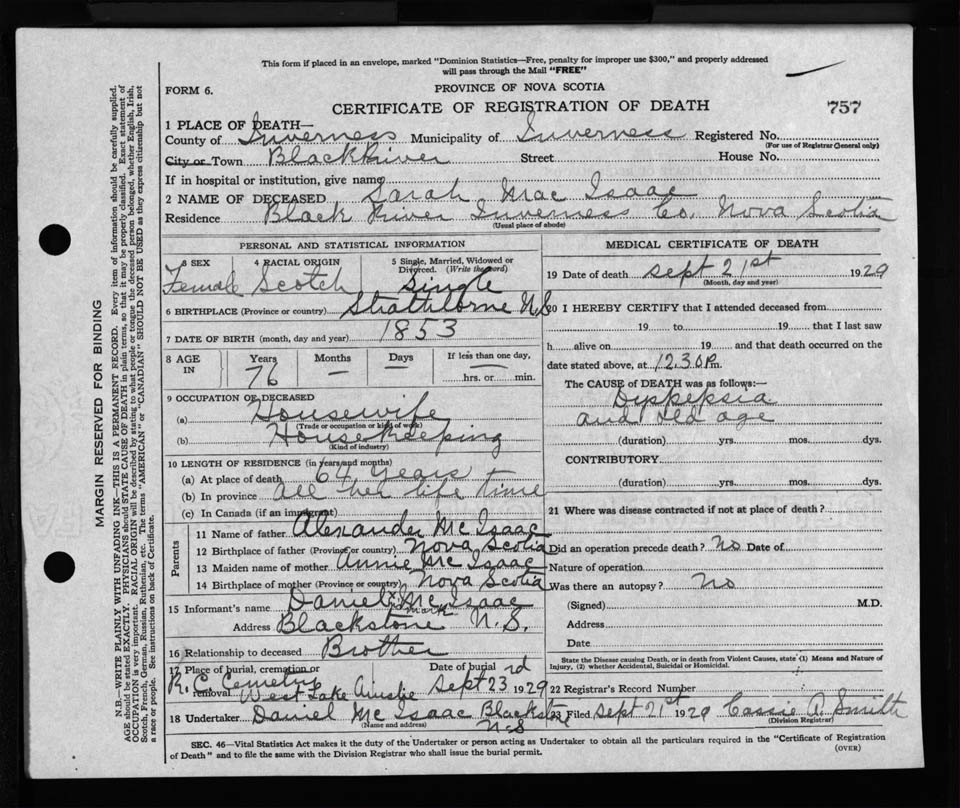 This form if placed in an envelope, marked "Dominion Statistics—Free, penalty for improper use $300," and properly addressed
will pass through the Mail "FREE"
FORM 6.
PROVINCE OF NOVA SCOTIA
CERTIFICATE OF REGISTRATION OF DEATH
757
1 PLACE OF DEATH—
County of Inverness Municipality of Inverness Registered No.
(For use of Registrar General only)
City or Town Black River Street House No.
If in hospital or institution, give name
2 NAME OF DECEASED Sarah Mac Isaac
Residence Black River Inverness Co. Nova Scotia
(Usual place of abode)
PERSONAL AND STATISTICAL INFORMATION
3 SEX 4 RACIAL ORIGIN 5 Single, Married, Widowed or
Divorced. (Write the word)
Female Scotch Single
6 BIRTHPLACE (Province or country) Strathlorne N.S
7 DATE OF BIRTH (month, day and year) 1853
8 AGE IN Years Months Days If less than one day,
76 — — hrs. or min.
9 OCCUPATION OF DECEASED
(a) Housewife
(Trade or occupation or kind of work)
(b) Housekeeping
(Kind of industry)
10 LENGTH OF RESIDENCE (in years and months)
(a) At place of death 64 years
(b) In province all her life time
(c) In Canada (if an immigrant)
Parents
11 Name of father Alexander Mc Isaac
12 Birthplace of father (Province or country) Nova Scotia
13 Maiden name of mother Annie Mc Isaac
14 Birthplace of mother (Province or country) Nova Scotia
15 Informant's name Daniel Mc Isaac
mark
Address Blackstone N.S.
16 Relationship to deceased Brother
17 Place of burial, cremation or removal Date of burial
R.C. Cemetry West Lake Ainslie Sept 23rd 1929
18 Undertaker Daniel Mc Isaac Blackstone
(Name and address) N.S
MEDICAL CERTIFICATE OF DEATH
19 Date of death Sept 21st 1929
(Month, day and year)
20 I HEREBY CERTIFY that I attended deceased from
19 to 19 that I last saw
h alive on 19 and that death occurred on the
date stated above, at 12.30 P.m.
The CAUSE of DEATH was as follows:—
Dyspepsia
and old age
(duration) yrs. mos. dys.
CONTRIBUTORY
(duration) yrs. mos. dys.
21 Where was disease contracted if not at place of death?
Did an operation precede death? No Date of
Nature of operation
Was there an autopsy? No
(Signed) M.D.
Address
Date
State the Disease causing Death, or in death from Violent Causes, state (1) Means and Nature of
Injury, (2) whether Accidental, Suicidal or Homicidal.
22 Registrar's Record Number
23 Filed Sept 21st 1929 Cassie A. Smith
(Division Registrar)
SEC. 46—Vital Statistics Act makes it the duty of the Undertaker or person acting as Undertaker to obtain all the particulars required in the "Certificate of Registration
of Death" and to file the same with the Division Registrar who shall issue the burial permit. (OVER)
MARGIN RESERVED FOR BINDING
N.B.—WRITE PLAINLY WITH UNFADING INK—THIS IS A PERMANENT RECORD. Every item of information should be carefully supplied.
AGE should be stated EXACTLY. PHYSICIANS should STATE CAUSE OF DEATH in plain terms, so that it may be properly classified. Exact statement of
OCCUPATION is very important. RACIAL ORIGIN will be described by stating to what people or tongue the deceased person belonged, whether English, Irish,
Scotch, French, German, Russian, Ruthenian, etc. The terms "AMERICAN" or "CANADIAN" SHOULD NOT BE USED as they express citizenship but not
a race or people. See instructions on back of Certificate.